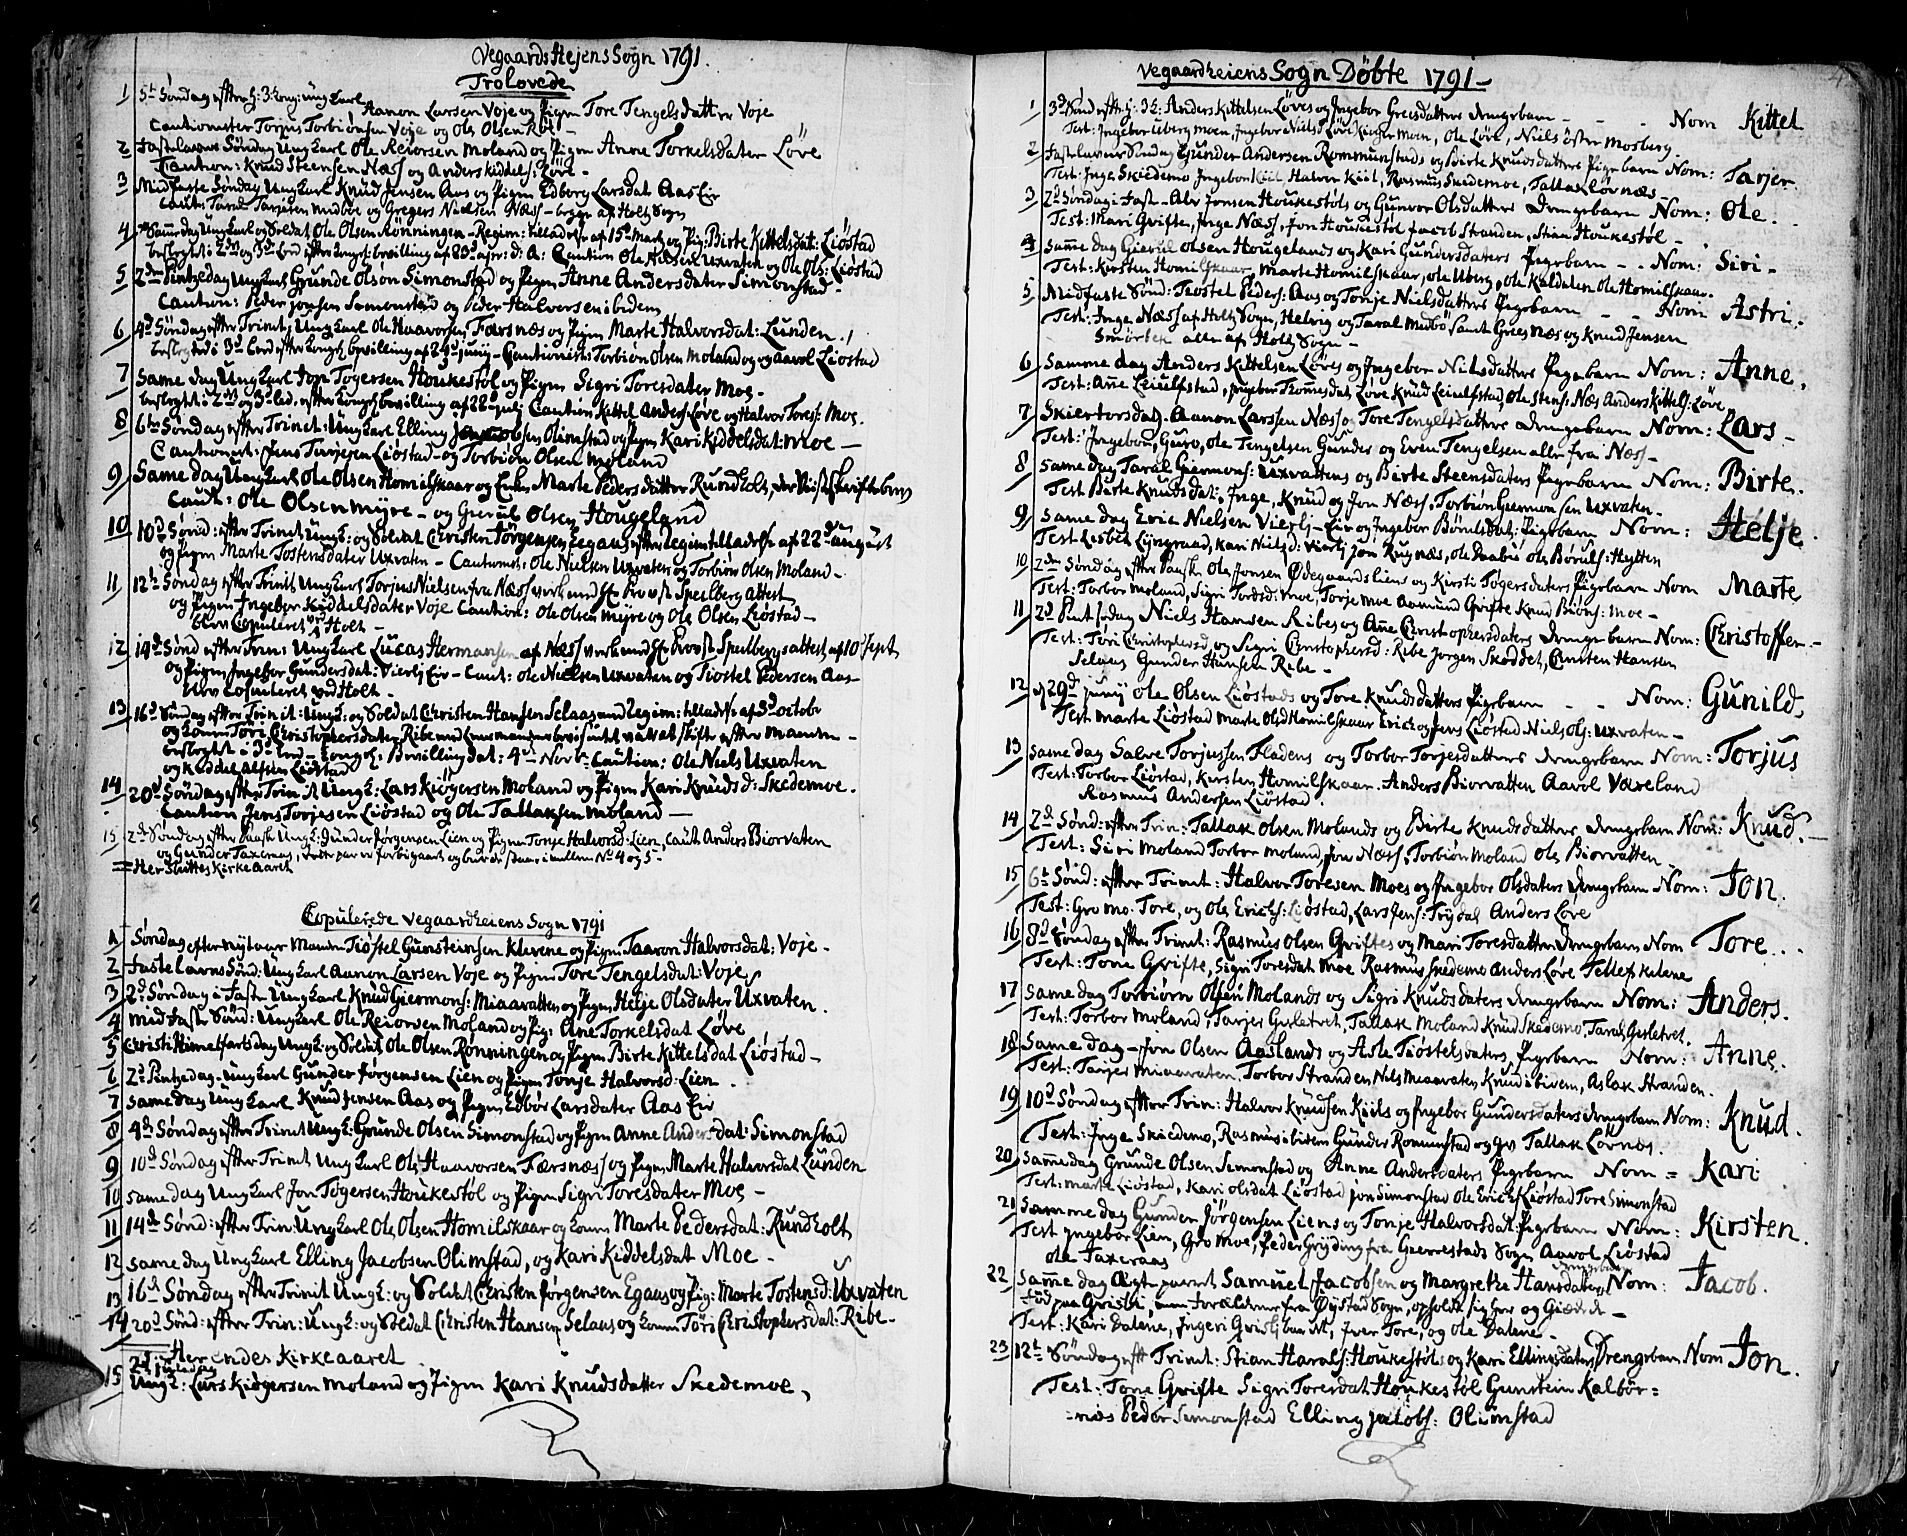 Vegaards Hejens Sogn 1791.
Trolovede
1 5te Søndag efter H: 3 Kong: ung karl Aanon Larsen Voje og Pigen Tore Tengelsdatter Voje
Cautionister Torjus Torbiønsen Voje og Ole Olsen
2 Fastelavns Søndag Ung karl Ole Reiorsen Moland og Pigen Anne Torkelsdater Løve
Caution: Knud Steensen Næss og Anders Kiddels: Løve -
3 Midfaste Søndag Ung karl Knud Jensen Aas og Pigen Edborg Larsdat Aas Eir
Caut: Taral Tarjesen Midbøe og Gregers Nielsen Næss - begge af Holtz Sogn
4 Ung karl og Soldat Ole Olsen Rønningen - Regim: tilladelse af 15de Marts og Pig: Birte Kittelsdat: Liøstad
beslegtet i 2den og 3de Leed efter Kongel: bevilling af 20de apr: d: A: Caution Ole Nielsen Uxvaten og Ole Ols: Liøstad
5 2den Pintzedag Ung karl Grunde Olsøn Simonstad og Pigen Anne Andersdater Simonstad -
Caution: Peder Jonsen Simonstad og Peder Halvorsen ibidem
6 4de Søndag efter Trinit: Ung karl Ole Haavorsen Færsnæs og Pigen Marte Halvorsdat: Lunden
beslegted i 3de Leed efter Kongel bevilling af 24de junij - Cautionister Torbiøn Olsen Moland og Aavol Liøstad
7 Same dag Ung karl Jon Togersen Houkestøl og Pigen Sigri Toresdater Moe -
beslegtet i 2den og 3de led, efter Kongel bevilling af 22de julj Caution Kittel Anders: Løve og Halvor Tores: Moe.
8 6te Søndag efter Trinit: Ung karl Elling Jacobsen Olimstad og Pigen Kari Kiddelsdat: Moe -
Cautionist: Jens Tarjesen Liøstad og Torbiøn Olsen Moland
9 Same dag Ung karl Ole Olsen Homilskaar og Enke Marte Pedersdatter Rundholt, der Viiste Skiftebrev
Caut: Ole Olsen Myre - og Gierul Olsen Hougeland
10 10de Sønd: efter Trinit Ung k: og Soldat Christen Jørgensen Egaas efter Regim tilladelse af 22de august
og Pigen Marte Tostensdater Uxvaten - Cautionist: Ole Nielsen Uxvaten og Torbiøn Olsen Moland -
11 12te Søndag efter Trinit Ung karl Torjus Nielsen fra Næss verk med Hr Provst Speilberg Attest
og Pigen Ingebor Kiddelsdater Voje Caution: Ole Olsen Myre og Ole Olsen Liøstad -
blev Copuleret v: Holt -
12 14de Sønd efter Trin: Ung karl Lucas Hermansen af Næss verk med Hr Provst Speilbergs attest af 10 Sept
og Pigen Ingebor Gundersdat: Vierlj Eir - Caut: Ole Nielsen Uxvaten og Tiøstel Pedersen Aas
blev Copuleret ved Holt -
13 16de Søndag efter Trinit: Ung k: og Soldat Christen Hansen Selaas med Regim: tilladelse af 3de octobr
og konen Tore Christophersdater Ribe med Lensmandens bevis intet udsat Skifte efter Manden -
beslegtet i 3de Leed - Kongel: Bevilling dat: 4de Nov b: Caution: Ole Niels: Uxvaten
og Kiddel Alfsen Liøstad
14 20de Søndag efter Trinit Ung k: Lars Kiøgersen Moland og Pigen Kari Knudsd: Skedemoe.
Caution Jens Torjesen Liøstad og Ole Tallaksen Moland -
15 2de Søndag efter Paaske Ung k: Gunder Jørgensen Lien og Pigen Tonje Halvorsd: Lien, Caut Anders Biorvaten
og Gunder Taxeraas, dette par er forbigaaet og burde staae imellem No 4 og 5 -
= Her Sluttes Kirke Aaret
Copulerede Vegaardheiens Sogn 1791
1 Søndag efter nytaar Manden Tiøstel Gunsteinsen Klevene og Pigen Taaron Halvorsdat: Voje -
2 Fastelavns Sønd: Ung karl Aanon Larsen Voje og Pigen Tore Tengelsdat: Voje
3 2de Søndag i Faste Ung karl Knud Giermons: Miaavatten og Pigen Helje Olsdater Uxvaten.
4 Midfaste Sønd: Ung karl Ole Reiorsen Moland og Pig: Ane Torkelsdat Løve
5 Christi Himelfarts dag Ung k: og Soldat Ole Olsen Rønningen og Pigen Birte Kittelsdat Liøstad -
6 2de Pintzedag - Ung karl Gunder Jørgensen Lien og Pigen Tonje Halvorsd: Lien.
7 Samedag Ung karl Knud Jensen Aas og Pigen Edbor Larsdater Aas Eir
8 4de Søndag efter Trinit Ung k: Grunde Olsen Simonstad og Pigen Anne Andersdat: Simonstad
9 10de Søndag efter Trinit Ung karl Ole Haavorsen Færsnæss og Pigen Marte Halvorsdat Lunden
10 samedag Ung karl Jon Tøgersen Houkestøl og Pigen Sigri Toresdater Moe -
11 14de Sønd: efter Trin: Ung karl Ole Olsen Homilskaar og konen Marte Pedersdat: Rundholt
12 samedag Ung karl Elling Jacobsen Olimstad, og Kari Kiddelsdat Moe -
13 16de Søndag efter Trinit Ung k: og Soldat Christen Jørgensen Egaas og Pig: Marte Tostensd: Uxvaten
14 20de Sønd: efter Trin: Ung k: og Soldat Christen Hansen Selaas og konen Tore Christophersdat: Ribe -
Her endes Kirkeaaret
15 2de Juledag
Ung k: Lars Kiøgersen Moland og Pigen Kari Knudsdatter Skedemoe,
Vegaardheiens Sogn Døbte 1791 -
1 3de Sønd efter H: 3 K: Anders Kittelsen Løves og Ingebor Greisdatters drengebarn - - - Nom Kittel
Test: Ingebor Uberg moen, Ingebor Niels Løve, moen, Ole Løve, Niels øster Mosberg
2 Fastelavns Søndag Gunder Andersen Rommunstads og Birte Knudsdatters Pigebarn Nom: Tarjer
Test: Inge Skiedemo Ingebor Kiil, Halvor Kiil, Rasmus Skedemoe, Tallak Lovnæs -
3 2de Søndag i Fast - Alv Jonsen Houkestøls og Gunvor Olsdatters drengebarn Nom: Ole.
Test: Mari Grifte, Inge Næss, Jon Houkestøl Jacob Stranden, Stian Houkestøl -
4 samme dag Gierul Olsen Hougelands og Kari Gundersdaters Pigebarn - . Nom: Siri -
Test: Kirsten Homilskaar, Marte Homilskaar, Ole Uberg, Ole Kaldalen Ole Homilskaar.
5 Midfaste Sønd: Tiøstel Peders: Aas og Tonje Nielsdatters Pigebarn - - Nom Astri.
Test: Inge Næss af Holtz Sogn, Helvig og Taral Midbø samt Grees Næs og Knud Jensen
Smørten alle af Holtz Sogn -
6 samme dag Anders Kittelsen Løves og Ingebor Nielsdatters Pigebarn Nom: Anne.
Test: Ane Leiulfstad, Ingebor Tommesdat, Løve Knud Leiulfstad, Ole Stens: Næs Anders Kittels: Løve
7 Skiertorsdag. Aanon Larssen Næss og Tore Tengelsdatters drengebarn Nom: Lars -
Test: Ingebor, Guro, Ole Tengelsen Gunder og Even Tengelsen alle fra Næss -
8 same dag Taral Giermons: Uxvattens og Birte Steensdaters Pigebarn Nom: Birte.
Test Birte Knudsdat:, Inge, Knud og Jon Næss, Torbiøn Giermonsen Uxvaten -
9 same dag Eric Nielsen Vierlj - Eir og Ingebor Børulsdat: Pigebarn Nom: Helje.
Test Lisbet Lyngraad, Kari Nielsd: Vierlj Jon Rugnæs, Ole Daabu Ole Børuls: Heften
10 2den Søndag efter Paaske Ole Jonsen Ødegaardsliens og Kirsti Togersdaters Pigebarn Nom Marte
Test: Torbor Moland, Sigri Toresd: Moe, Torje Moe Aamund Grifte Knud Biøns: Moe -
11 2de Pintsedag Niels Hansen Ribes og Ane Christophersdaters drengebarn Nom: Christoffer -
Test: Tore Christophersd og Sigri Christophersd: Ribe Jørgen Skøddet, Christen Hansen
Selaas Gunder Hansen Ribe -
12 29de junij Ole Olsen Liøstads og Tore Knudsdatters Pigebarn - - Nom: Gunild,
Test Marte Liøstad Marte Olsd Homilskaar Erich og Jens Liøstad Niels Ols: Uxvaten -
13 same dag Salve Torjussen Fladens og Torbor Torjesdatters drengebarn Nom: Torjus
Test: Torbor Liøstad, Kirsten Homilskaar. Anders Biorvatten Aavol Væreland
Rasmus Andersen Liøstad.
14 7de Sønd: efter Trin: Tallak Olsen Molands og Birte Knudsdatters drengebarn Nom: Knud. -
Test: Siri Moland Torbor Moland, Jon Næss, Torbiøn Moland Ole Biorvatten -
15 6te Sønd: efter Trinit: Halvor Toresen Moes og Ingebor Olsdaters drengebarn Nom: Jon.
Test: Gro Mo. Tore, og Ole Erichs: Liøstad, Lars Jens: Trydal Anders Løve
16 8de Søndag efter Trinit: Rasmus Olsen Griftes og Mari Toresdatters drengebarn Nom Tore...
Test: Tone Grifte, Sigri Toresdat Moe Rasmus Skedemo Anders Løve Tellef Kulene
17 samedag Torbiørn Olsen Molands og Sigri Knudsdaters drengebarn Nom: Anders.
Test: Torbor Moland, Tarjer Girletret, Tallak Moland Knud Skedemo, Taral Girletret.
18 Samedag - Jon Olsen Aaslands og Asle Tiøstelsdaters Pigebarn Nom: Anne.
Test: Tarjer Miaavaten, Torbor Stranden Niels Miaavaten Knud ibidem, Aslak Stranden.
19 10de Søndag efter Trin: Halvor Knudsen Kiils og Ingebor Gundersdaters drengebarn Nom: Knud.
Test: Inge Skiedemo, Rasmus ibidem Gunder Romunstad og Tallak Lovnæs.
20 Samedag Grunde Olsen Simonstad og Anne Andersdaters Pigebarn Nom = Kari
Test: Marte Liøstad, Kari Olsdat Liøstad Jon Simonstad Ole Erichs Liøstad Tore Simonstad
21 Samme dag Gunder Jørgensen Liens og Tonje Halvorsdat: Pigebarn Nom: Kirsten.
Test Ingebor Lien, Gro Moe, Peder Gryding fra Gierrestads Sogn Aavol Liøstad
Ole Taxeraas
22 Same dag Ægteparret Samuel Jacobsen og Margrethe Hansdaters drengebarn Nom: Jacob.
fød paa Grislj, men Forældrene fra Øystad Sogn, opholdt sig her og Giæde -
Test: Kari Dalene, Ingeri Grislj, Iver Tore, og Ole Dalene -
23 12te Søndag efter Trinit: Stian Harals: Houkestøls og Kari Ellingsdaters Drengebarn Nom Jon.
Test: Tone Grifte Sigri Toresdat Houkestøl Gunstein Kalbør=
=næs Peder Simonstad Elling Jacobs: Olimstad